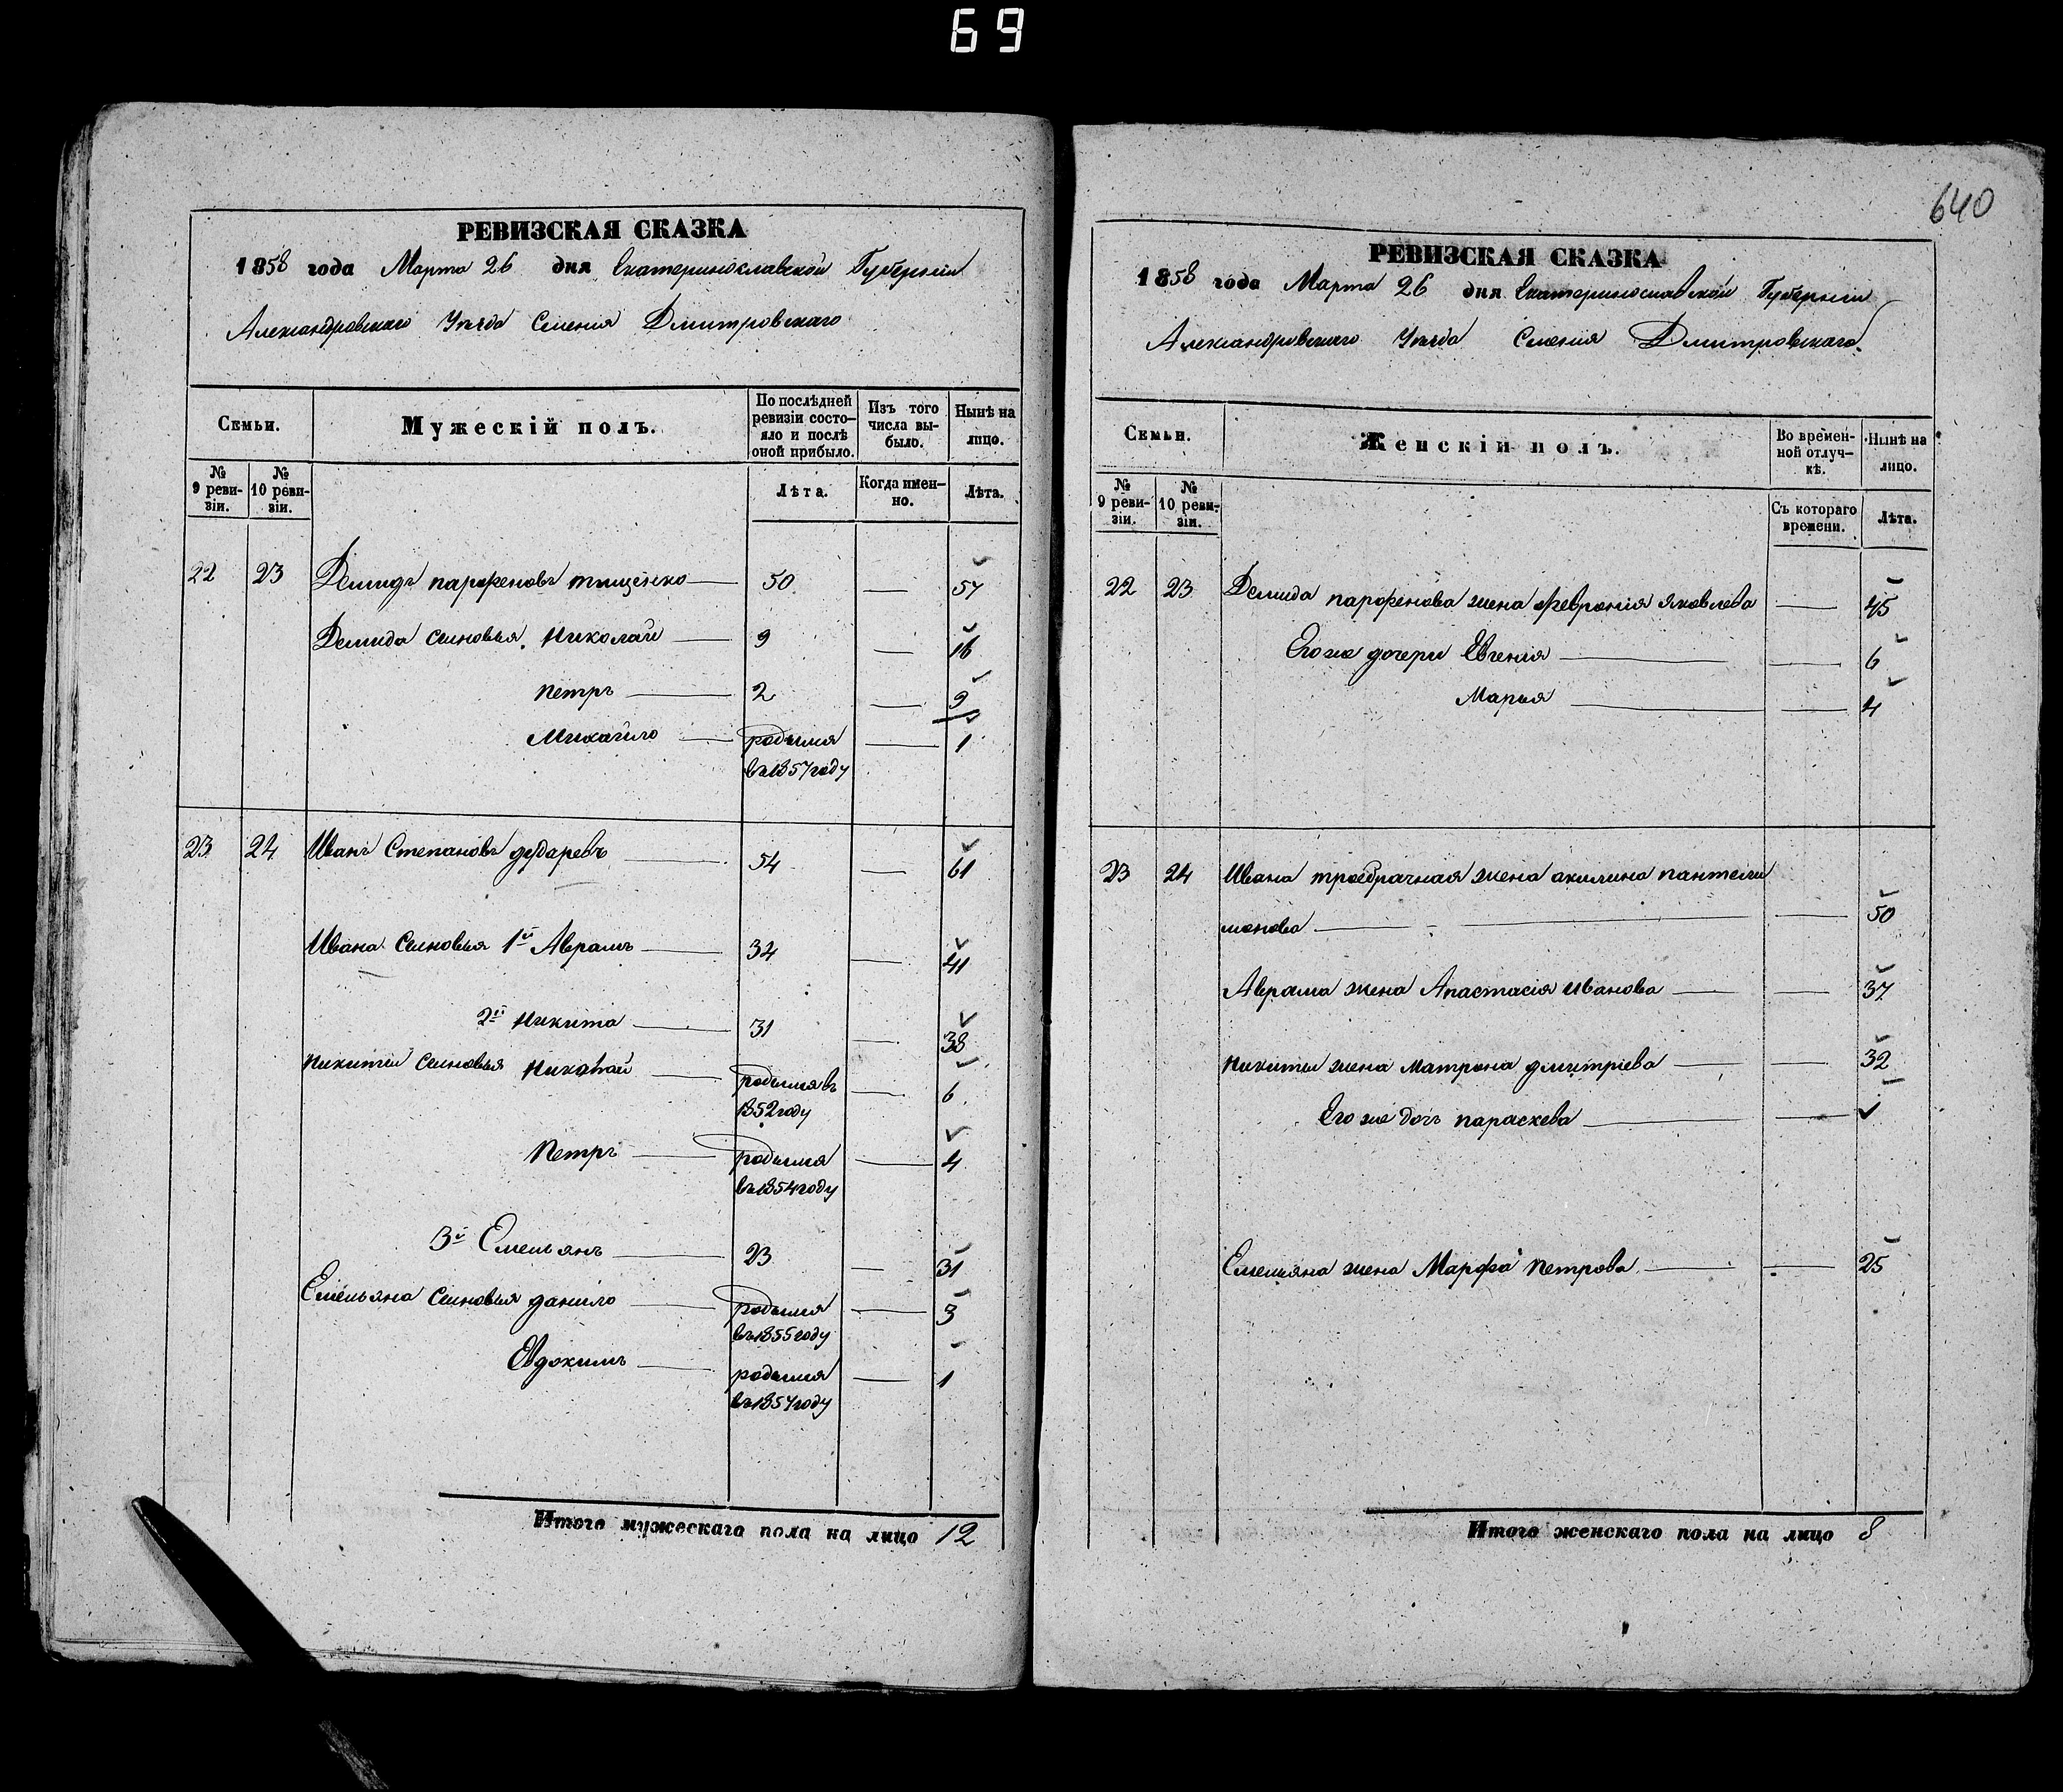 69
РЕВИЗСКАЯ СКАЗКА
1858 года Марта 26 дня Екатеринославской Губерніи
Александровскаго Уѣзда Селенія Дмитровскаго
Семьи.
Мужескій полъ.
По послѣдней ревизіи состо-
яло и послѣ
оной прибыло.
Изъ того
числа вы-
было.
Нынѣ на
лицо.
№
9 реви-
зіи.
№
10 реви-
зіи.
Лѣта.
Когда имен-
но.
Лѣта.
22 23 Демидъ парфеновъ тищенко 50 — 57
Демида сыновья Николай 9 — 16
петръ 2 — 9
Михайло родился — 1
въ 1857 году
23 24 Иванъ Степановъ дударевъ 54 — 61
Ивана Сыновья 1й Аврамъ 34 — 41
2й никита 31 — 38
никиты Сыновья родился въ — 6
1852 году
Петръ родился — 4
въ 1854 году
3й Емельянъ 23 — 31
Емельяна Сыновья данило родился — 3
въ 1855 году
Евдокимъ родился — 1
въ 1857 году
Итого мужескаго пола на лицо 12
640
РЕВИЗСКАЯ СКАЗКА
1858 года Марта 26 дня Екатеринославской Губерніи
Александровскаго Уѣзда Селенія Дмитровскаго
Семьи.
Женскій полъ.
Во времен-
ной отлуч-
кѣ.
Нынѣ на
лицо.
№
9 реви-
зіи.
№
10 реви-
зіи.
Съ котораго
времени.
Лѣта.
22 23 Демида парфенова жена февронія яковлева — 45
Его же дочери Евгенія — 6
Марья — 4
23 24 Ивана троебрачная жена акилина пантели
монова — 50
Аврама жена Анастасія иванова — 37
никиты жена матрона дмитріева — 32
Его же дочь параскева —
Емельяна жена Марфа петрова — 25
Итого женскаго пола на лицо 8